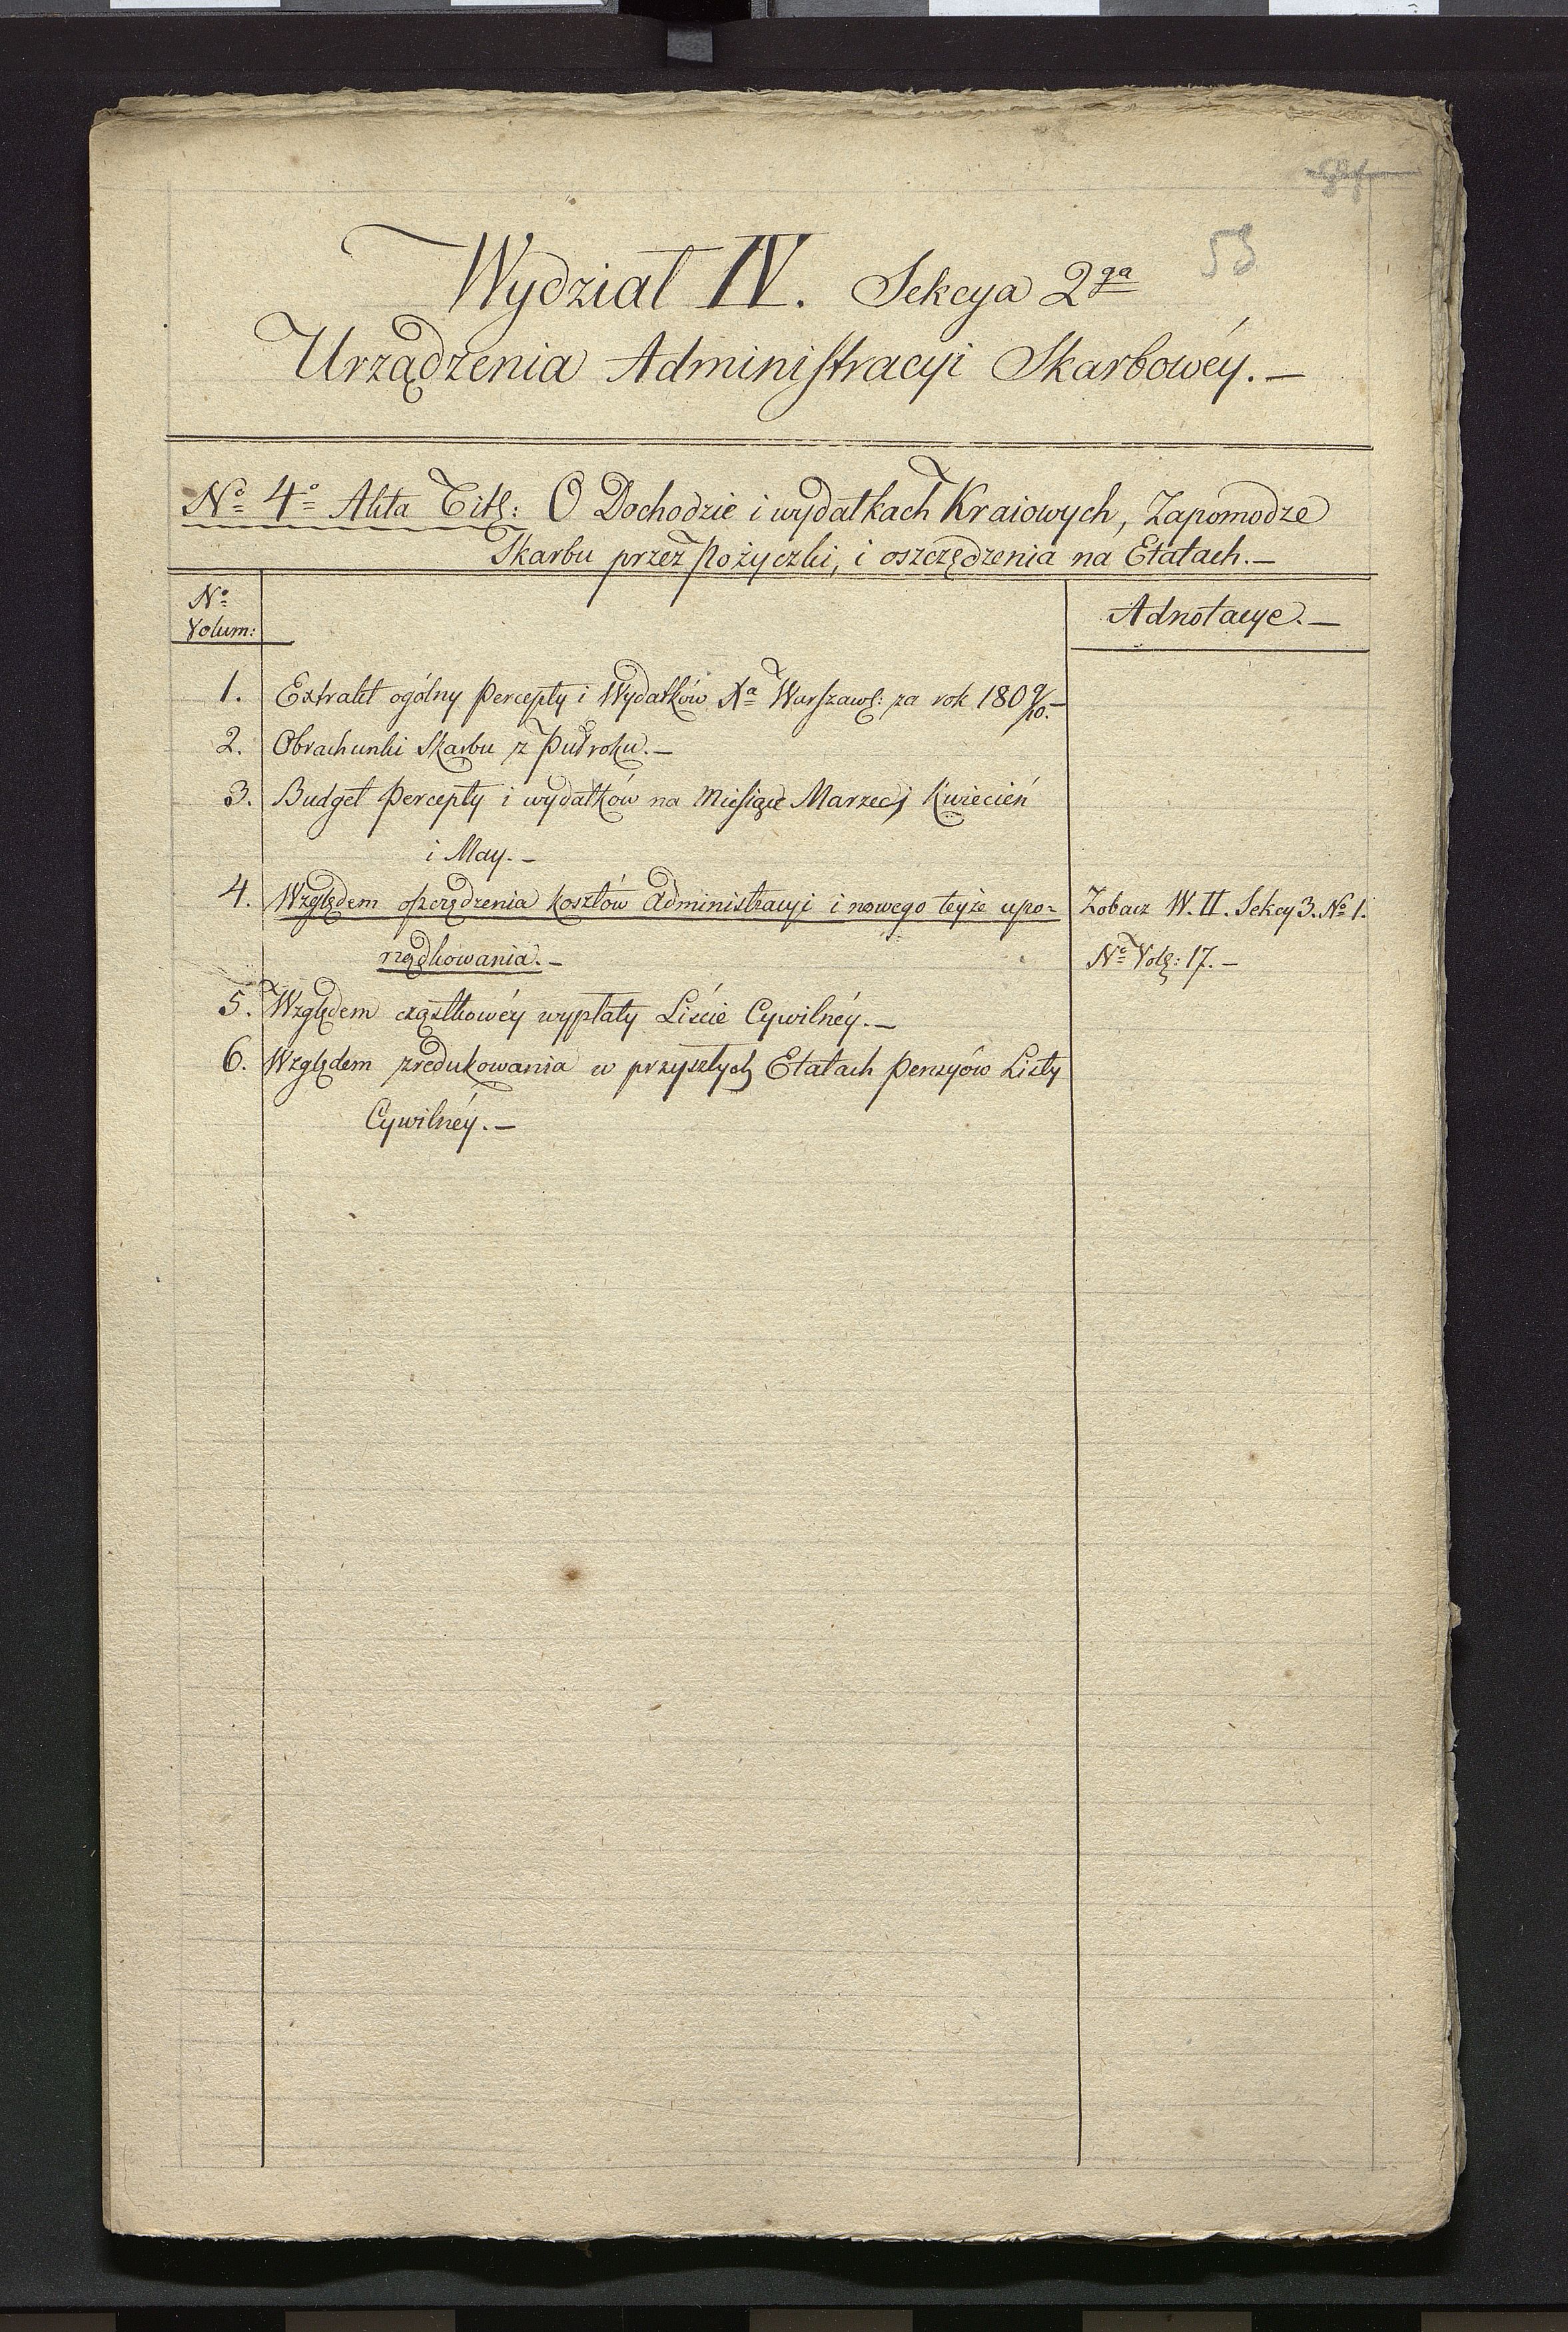 53
Wydział IV. Sekcya 2ga
Urządzenia Administracyi Skarbowéy. —
No 4o Akta Titl: O Dochodzie i wydatkach Kraiowych, Zapomodze
Skarbu przez Pożyczki, i oszczędzenia na Etatach. —
No
Volum:
Adnotacye. —
1. Extrakt ogólny Percepty i Wydatków Xa Warszaws: za rok 1809/10. —
2. Obrachunki Skarbu z Pułroku. —
3. Budget Percepty i wydatków na Miesiące Marzec, Kwiecień
i May. —
4. Względem oszczędzenia kosztów Administracyi i nowego teyże upo- Zobacz W. II. Sekcy 3. No 1.
rządkowania. — No Vol: 17. —
5. Względem cząstkowéy wypłaty Liście Cywilnéy. —
6. Względem zredukowania w przyszłych Etatach Pensyów Listy
Cywilnéy. —